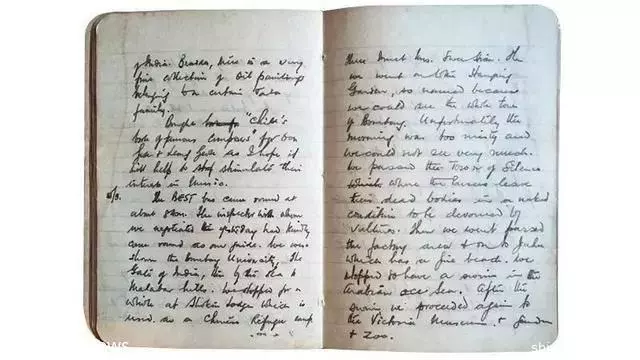 of India. Besides, there is a very
fine collection of oil paintings
belonging to a certain Tata
family.
Bought "Child's
book of famous composers" for Gon
Gea & Leng Gea as I hope it
will help to stimulate their
interest in music.
The BEST bus came round at
about 8 am. The inspector with whom
we negotiated the yesterday had kindly
come round as our guide. We were
shown the Bombay University, The
Gate of India, the by the sea to
Malabar hills. We stopped for a
while at Lodge which is
used as a Chinese Refugee camp
There Mrs. The
we went on to the Hanging
Garden, so named because
we could see the whole town
of Bombay. Unfortunately the
morning was too misty and
we could not see very much.
We passed the Tower of Silence
where the Parsees leave
their dead bodies in a naked
condition to be devoured by
vultures. Then we went passed
the factory area & on to Juhu
which has a fine beach. We
stopped to have a swim in the
Arabian Sea. After the
swim we proceeded again to
the Victoria Museum & Garden
& Zoo.